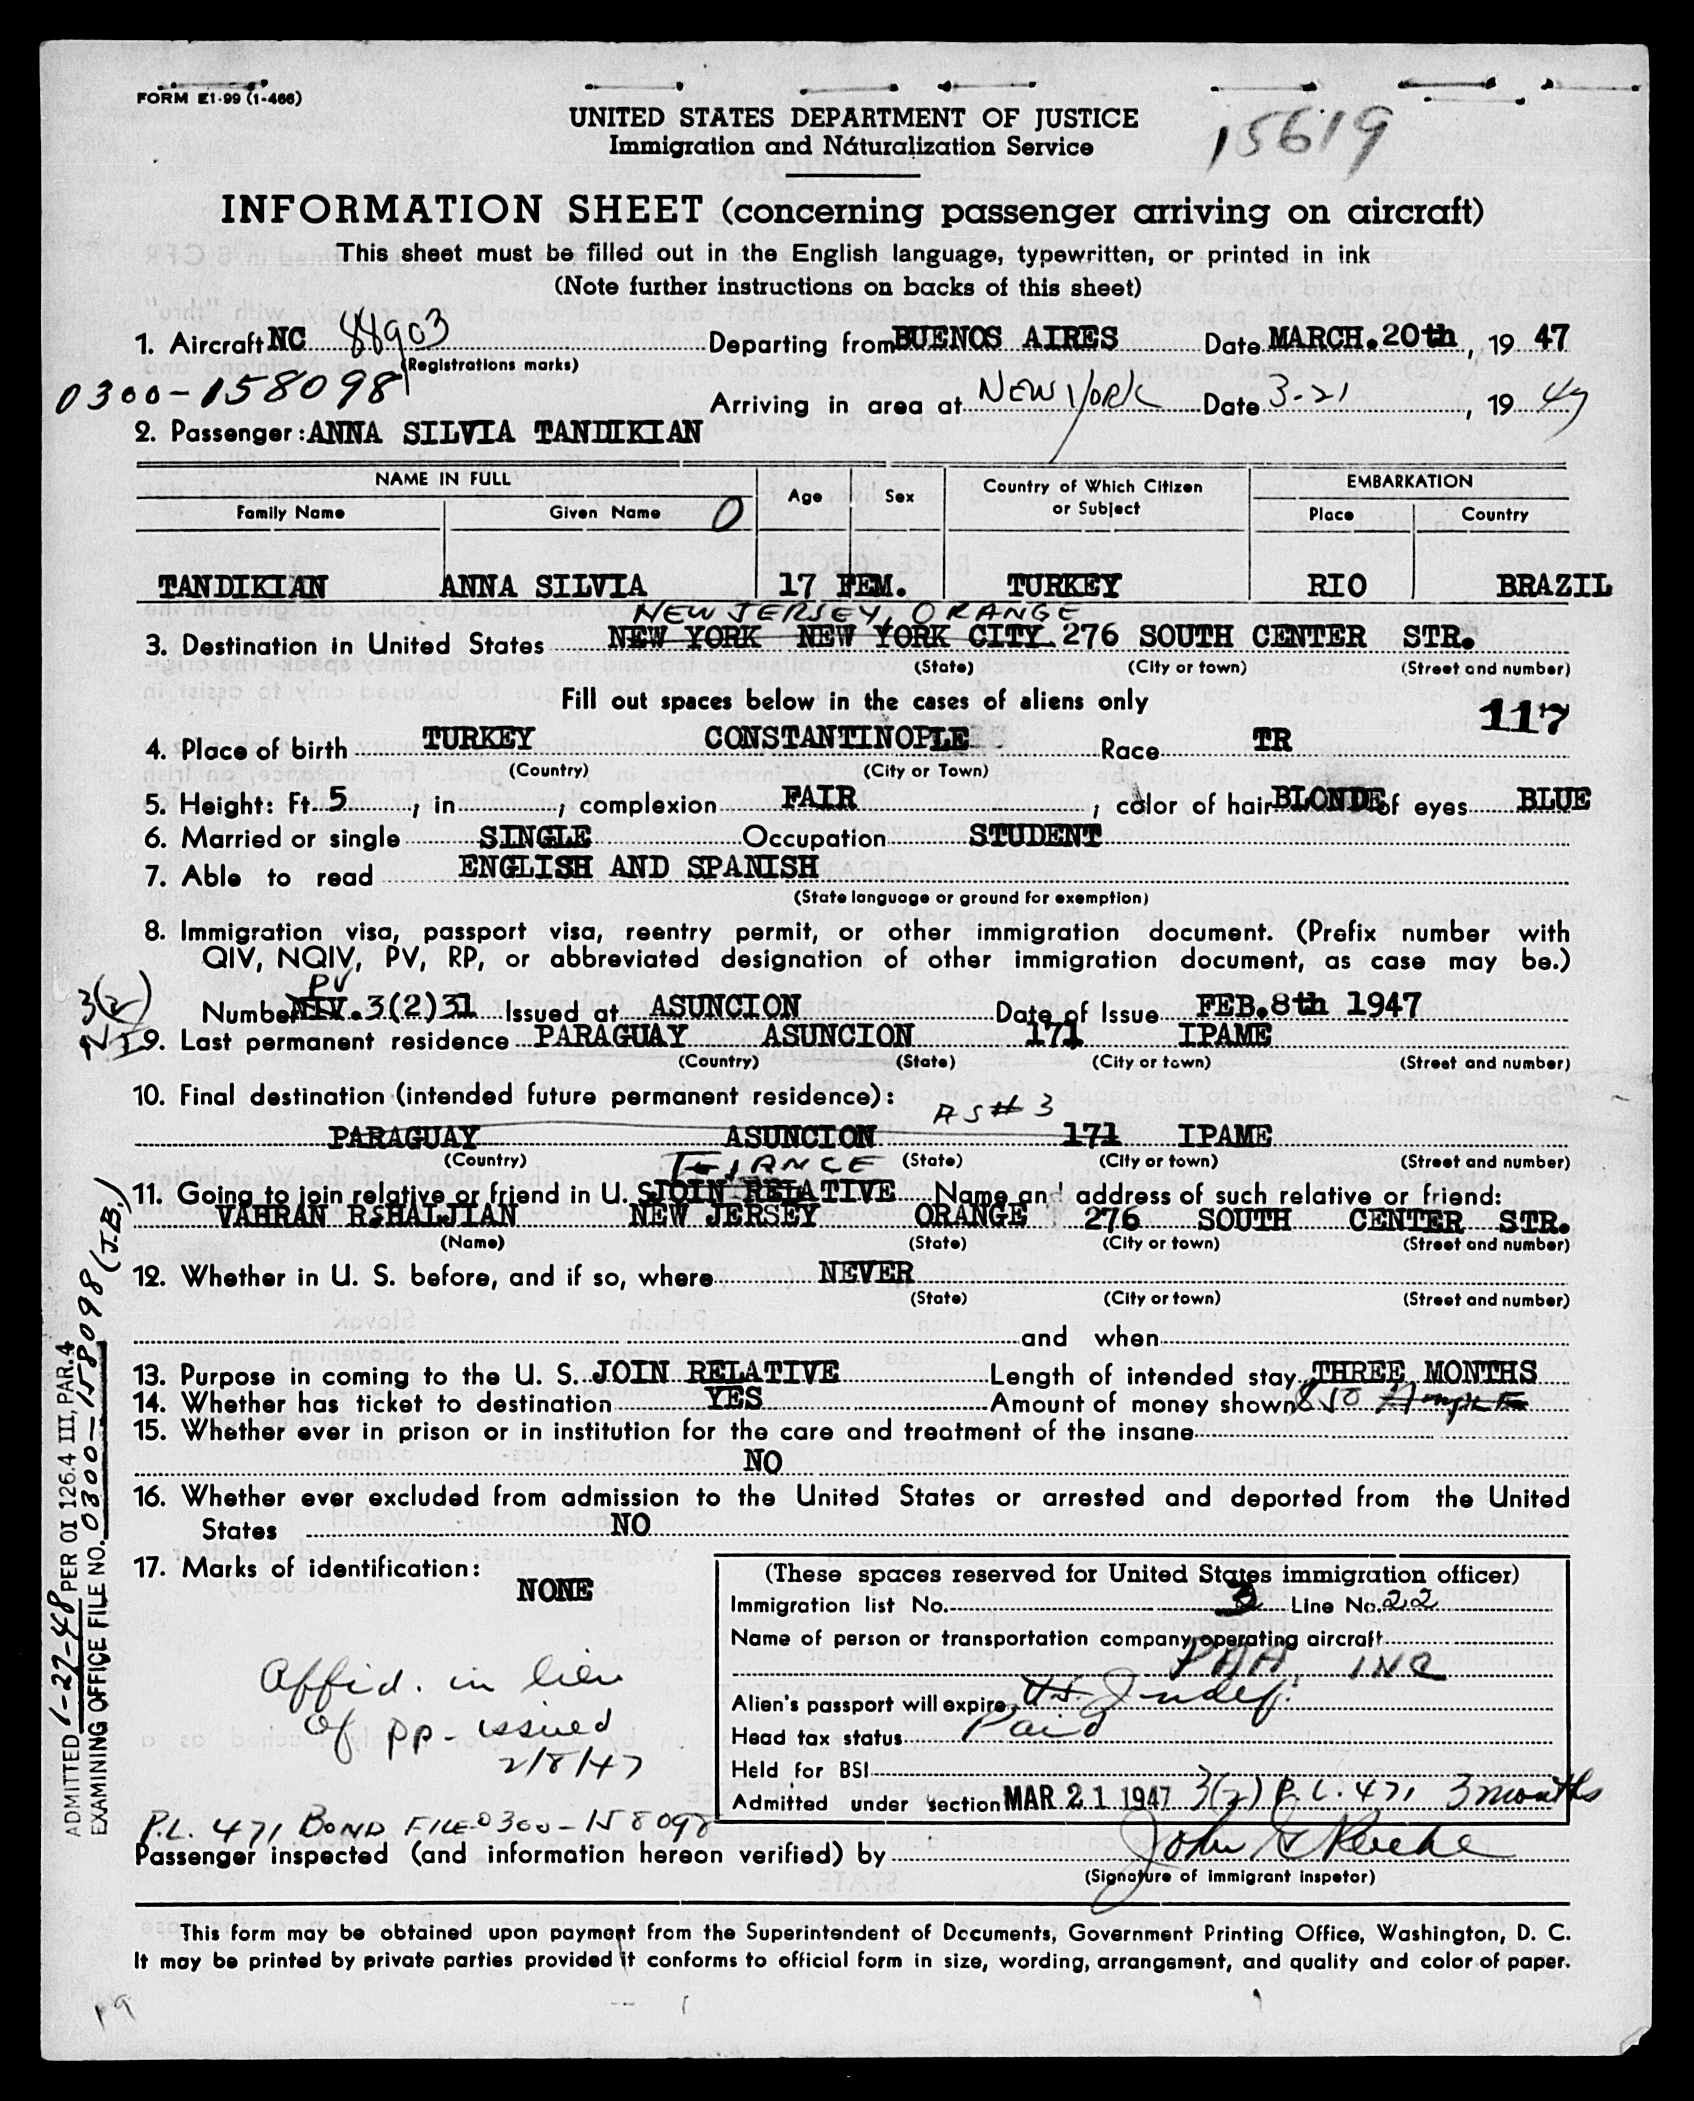 FORM E1-99 (1-466)
UNITED STATES DEPARTMENT OF JUSTICE
Immigration and Naturalization Service
15619
INFORMATION SHEET (concerning passenger arriving on aircraft)
This sheet must be filled out in the English language, typewritten, or printed in ink
(Note further instructions on backs of this sheet)
1. Aircraft NC 88903 Departing from BUENOS AIRES Date MARCH.20th, 19 47
(Registrations marks)
0300-158098
Arriving in area at NEW YORK Date 3-21, 19 47
2. Passenger: ANNA SILVIA TANDIKIAN
NAME IN FULL Age Sex Country of Which Citizen or Subject EMBARKATION
Family Name Given Name O Place Country
TANDIKIAN ANNA SILVIA 17 FEM. TURKEY RIO BRAZIL
NEW JERSEY, ORANGE
3. Destination in United States NEW YORK NEW YORK CITY 276 SOUTH CENTER STR.
(State) (City or town) (Street and number)
Fill out spaces below in the cases of aliens only
117
4. Place of birth TURKEY CONSTANTINOPLE Race TR
(Country) (City or Town)
5. Height: Ft. 5, in, complexion FAIR; color of hair BLONDE of eyes BLUE
6. Married or single SINGLE Occupation STUDENT
7. Able to read ENGLISH AND SPANISH
(State language or ground for exemption)
8. Immigration visa, passport visa, reentry permit, or other immigration document. (Prefix number with
QIV, NQIV, PV, RP, or abbreviated designation of other immigration document, as case may be.)
PV
3(2)
NI
Number NIV.3(2)31 Issued at ASUNCION Date of Issue FEB.8th 1947
9. Last permanent residence PARAGUAY ASUNCION 171 IPAME
(Country) (State) (City or town) (Street and number)
10. Final destination (intended future permanent residence):
AS # 3
PARAGUAY ASUNCION 171 IPAME
(Country) (State) (City or town) (Street and number)
FIANCE
11. Going to join relative or friend in U. S. JOIN RELATIVE Name and address of such relative or friend:
VAHRAN RsHALJIAN NEW JERSEY ORANGE 276 SOUTH CENTER STR.
(Name) (State) (City or town) (Street and number)
12. Whether in U. S. before, and if so, where NEVER
(State) (City or town) (Street and number)
and when
13. Purpose in coming to the U. S. JOIN RELATIVE Length of intended stay THREE MONTHS
14. Whether has ticket to destination YES Amount of money shown $50
15. Whether ever in prison or in institution for the care and treatment of the insane
NO
16. Whether ever excluded from admission to the United States or arrested and deported from the United
States NO
17. Marks of identification:
NONE
Affid. in lieu
of pp - issued
2/8/47
P.L. 471 BOND FILE 0300-158098
(These spaces reserved for United States immigration officer)
Immigration list No. 3 Line No. 22
Name of person or transportation company operating aircraft
PAA INC
Alien's passport will expire Indef.
Head tax status Paid
Held for BSI
Admitted under section MAR 21 1947 3(2) P.L. 471 3 months
Passenger inspected (and information hereon verified) by
(Signature of immigrant inspetor)
This form may be obtained upon payment from the Superintendent of Documents, Government Printing Office, Washington, D. C.
It may be printed by private parties provided it conforms to official form in size, wording, arrangement, and quality and color of paper.
ADMITTED 1-27-48 PER OI 126.4 III, PAR.4
EXAMINING OFFICE FILE NO. 0300-158098 (J.B.)
19